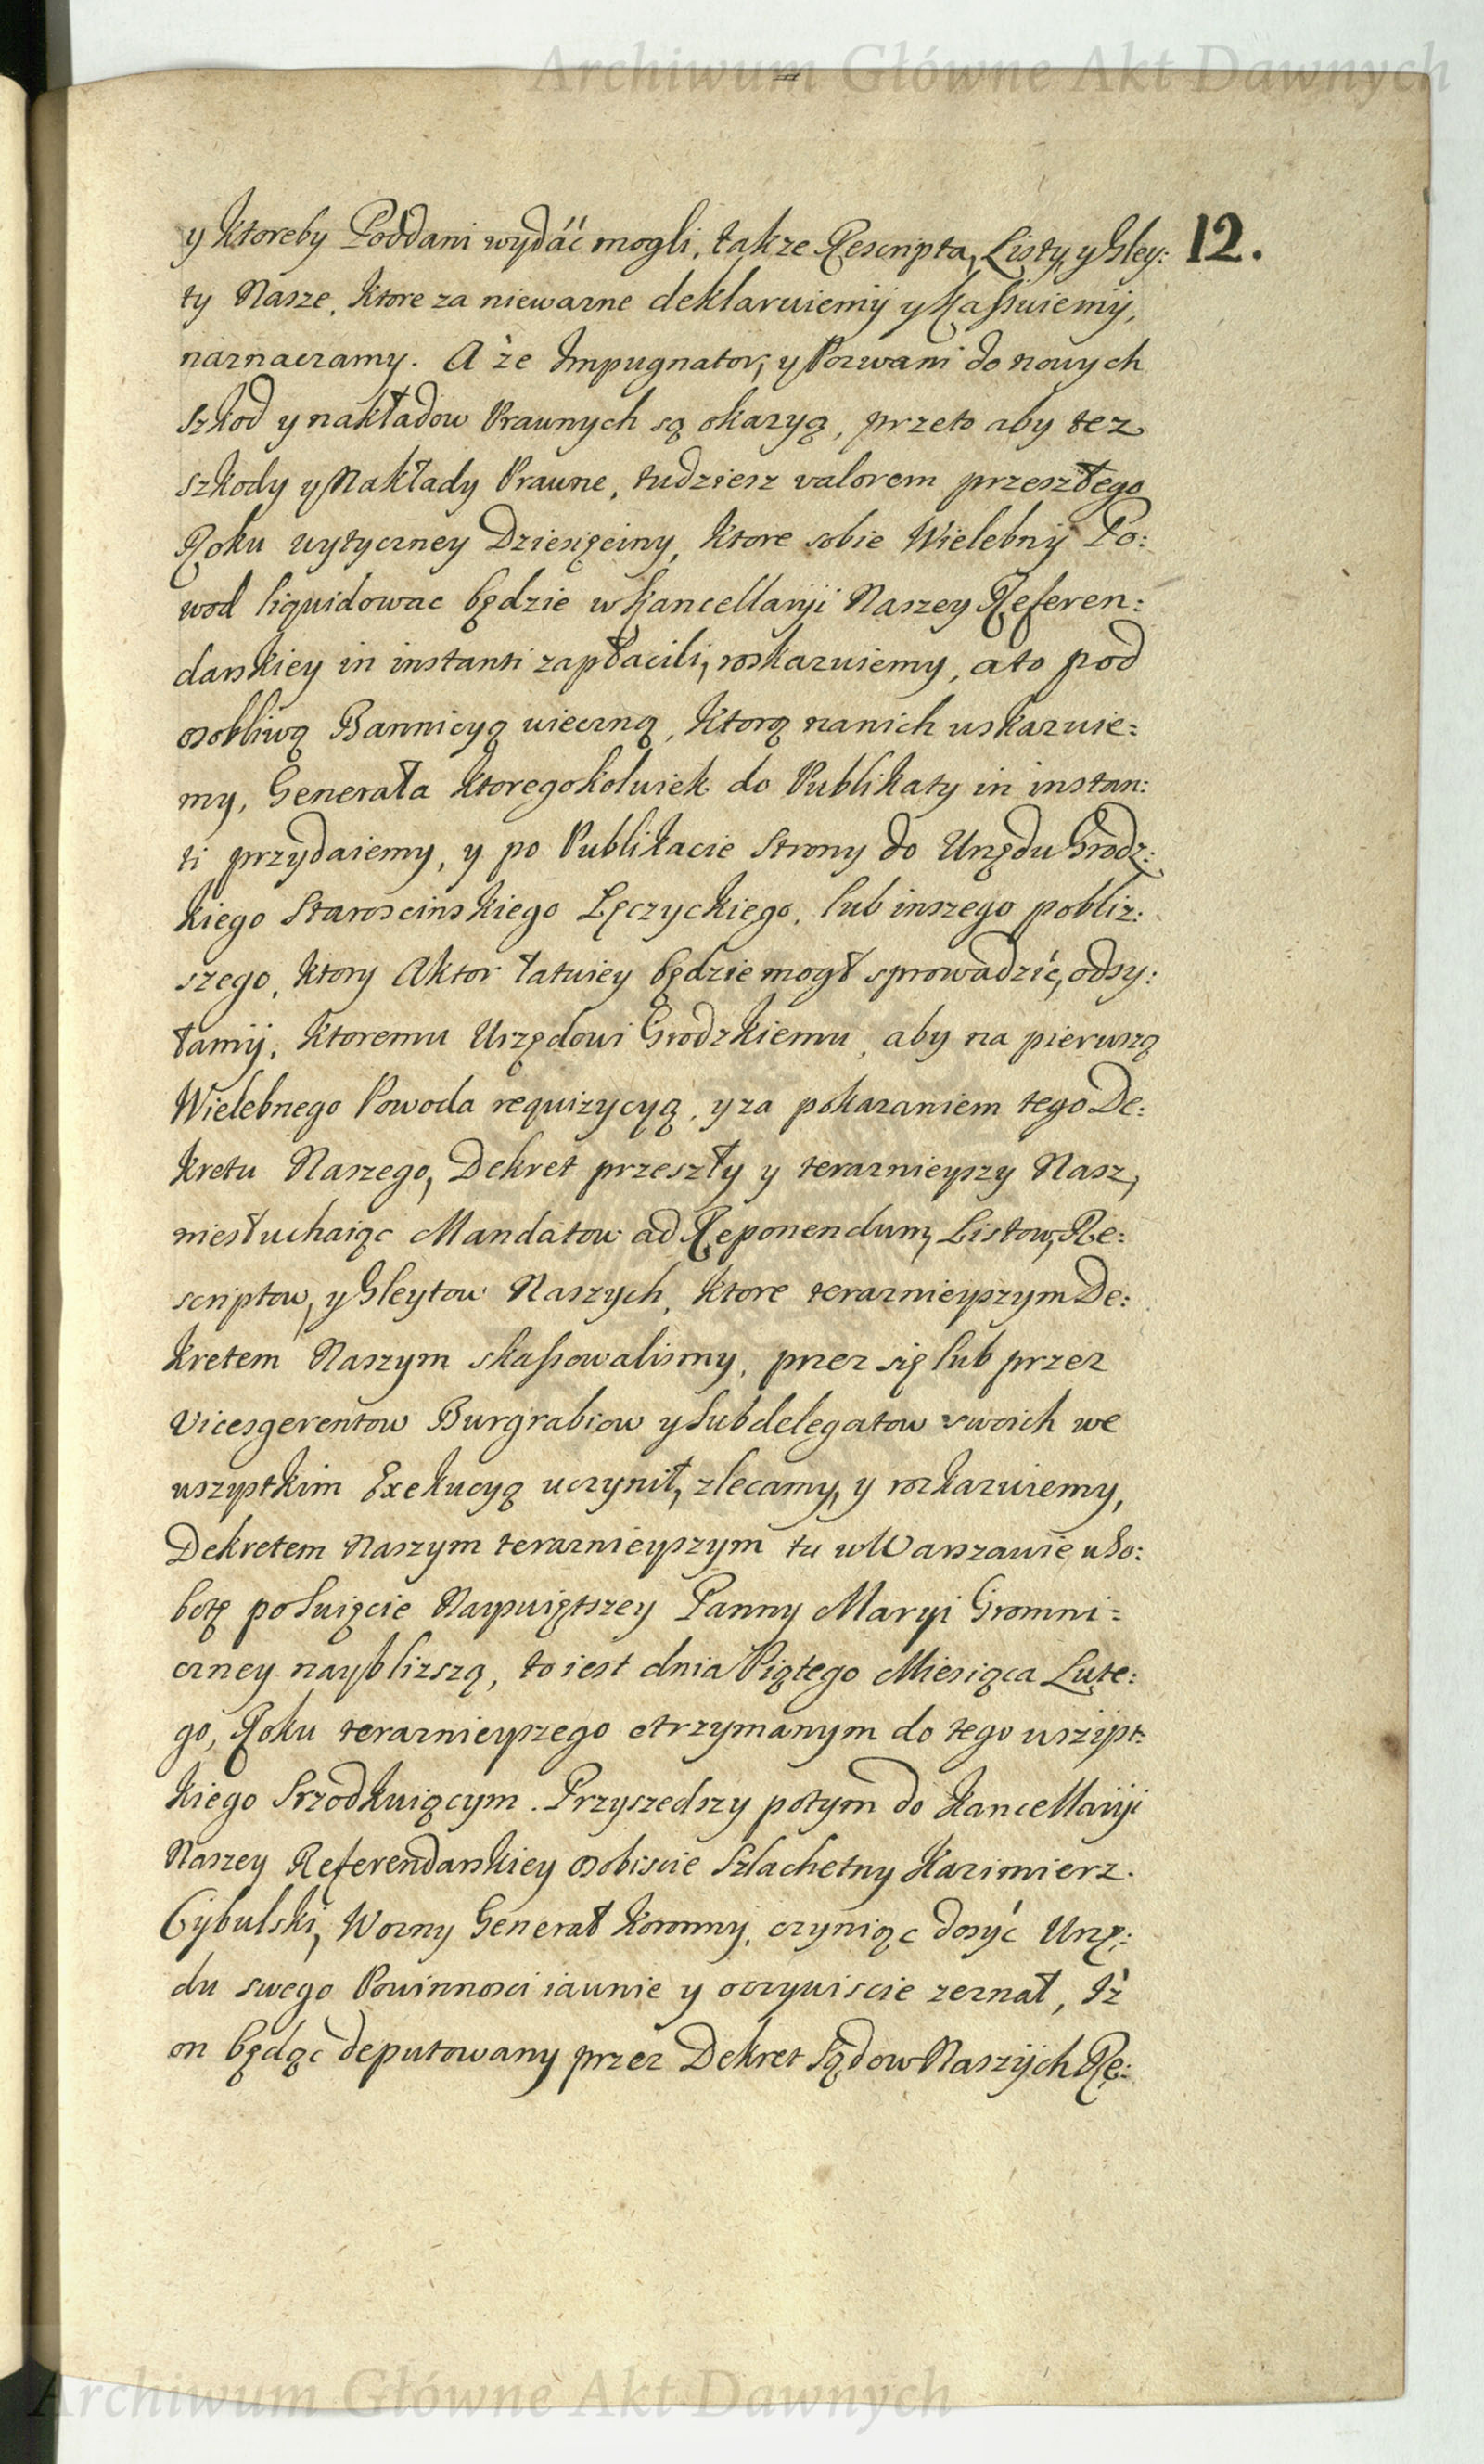 Archiwum Główne Akt Dawnych
12.
y ktoreby Poddani wydáć mogli, także Rescripta, Listy, y Gley:
ty Nasze, ktore za niewazne deklaruiemÿ y kassuiemÿ,
naznaczamy. A że Impugnatorị y Pozwani do nowych
szkod y nakładow Prawnych są okazyą, przeto aby tez
szkody y Nakłady Prawne, tudziesz valorem przeszłego
Roku wytyczney Dziesięciny, ktore sobie Wielebnÿ Po:
wod liquidowac będzie w Kancellaryi Naszey Referen:
darskiey in instanti zapłacili, roskazuiemy, a to pod
osobliwą Bannicyą wieczną, ktorą na nich wskazuie:
my, Generała ktoregokolwiek do Publikaty in instan:
ti przydaiemy, y po Publikacie Strony do Urzędu Grodz:
kiego Staroscinskiego Lęczyckiego, lub inszego pobliz:
szego, ktory Aktor łatwiey będzie mogł sprowadzić, odsy:
łamÿ, ktoremu Urzędowi Grodzkiemu, aby na pierwszą
Wielebnego Powoda requizycyą, y za pokazaniem tego De:
kretu Naszego, Dekret przeszły y terazнieyszy Nasz,
niesłuchaiąc Mandatow ad Reponendum, Listow, Re:
scriptow, y Gleytow Naszych, ktore terazniеyszym De:
kretem Naszym skassowalismy, przez się lub przez
Vicesgerentow Burgrabiow y Subdelegatow swoich we
wszystkim Exekucyą uczynił, zlecamy, y rozkazuiemy,
Dekretem Naszym teraznieyszym tu w Warszawie w So:
botę po Swięcie Nayswiętszey Panny Maryi Gromni:
czney naybliszszą, to iest dnia Piątego Miesiąca Lute:
go, Roku teraznieyszego otrzymanym do tego wszÿst:
kiego srzodkuiącym. Przyszedszy potym do Kancellaryi
Naszey Referendarskiey osobiscie Szlachetny Kazimierz
Cybulski, Wozny Generał Koronny, czyniąc dosyć Urzę:
du swego Powinnosci iawnie y oczywiscie zeznał, Iż
on będąć deputowany przez Dekret Sądow Naszÿch Re:
Archiwum Główne Akt Dawnych